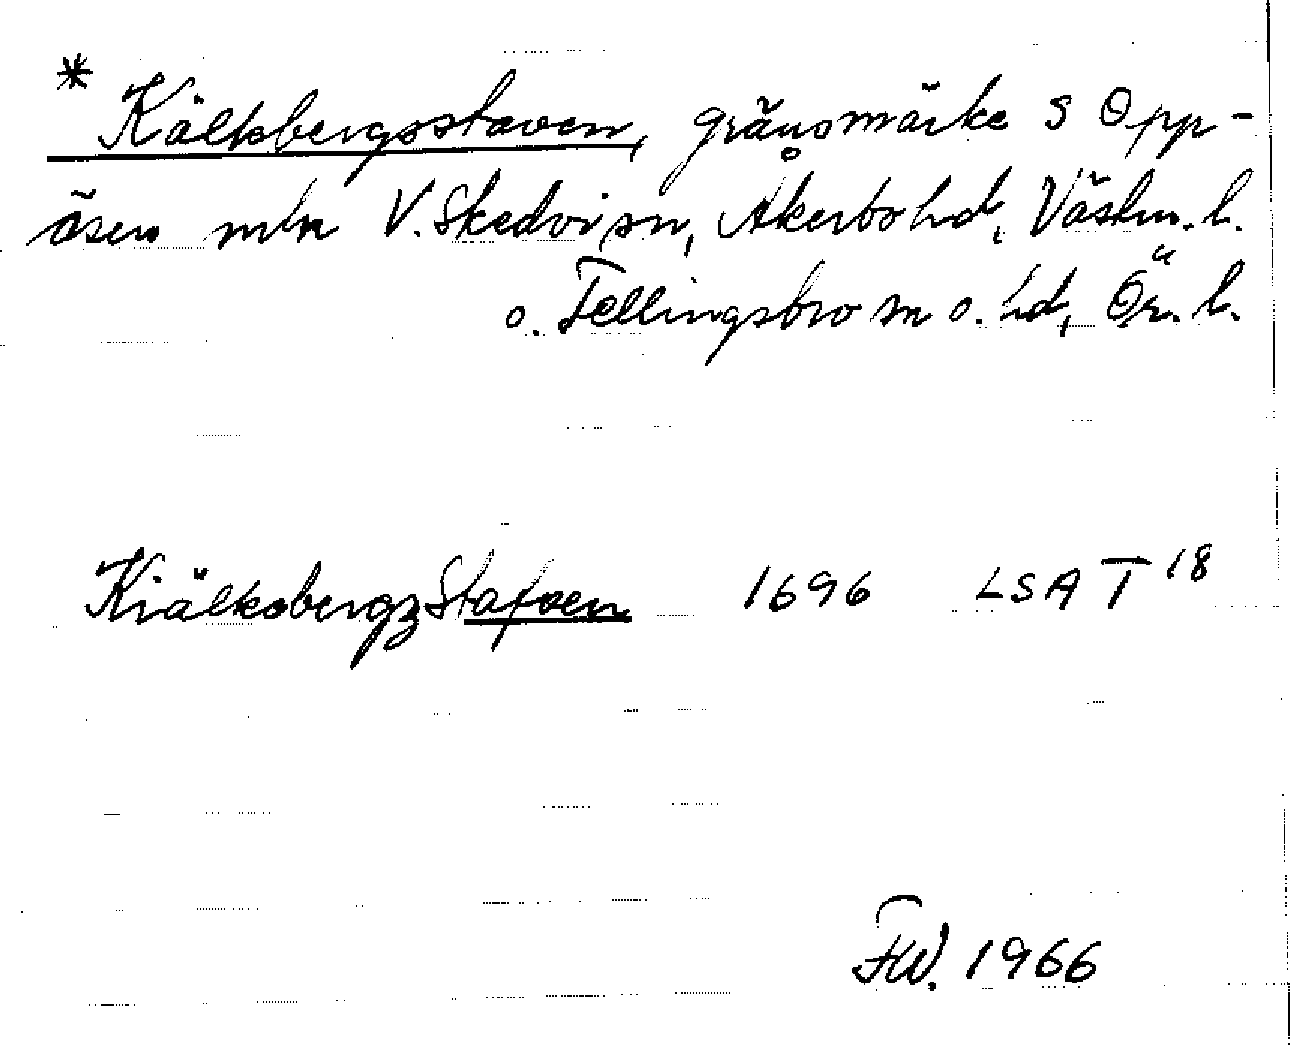 * Kälksbergsstaven, gränsmärke S Opp-
åsen mln V. Skedvi sn, Åkerbo hd, Västm. l.
o. Fellingsbro sn o. hd, Ör. l.
KiälksbergzStafven 1696 LSA T 18
FW. 1966